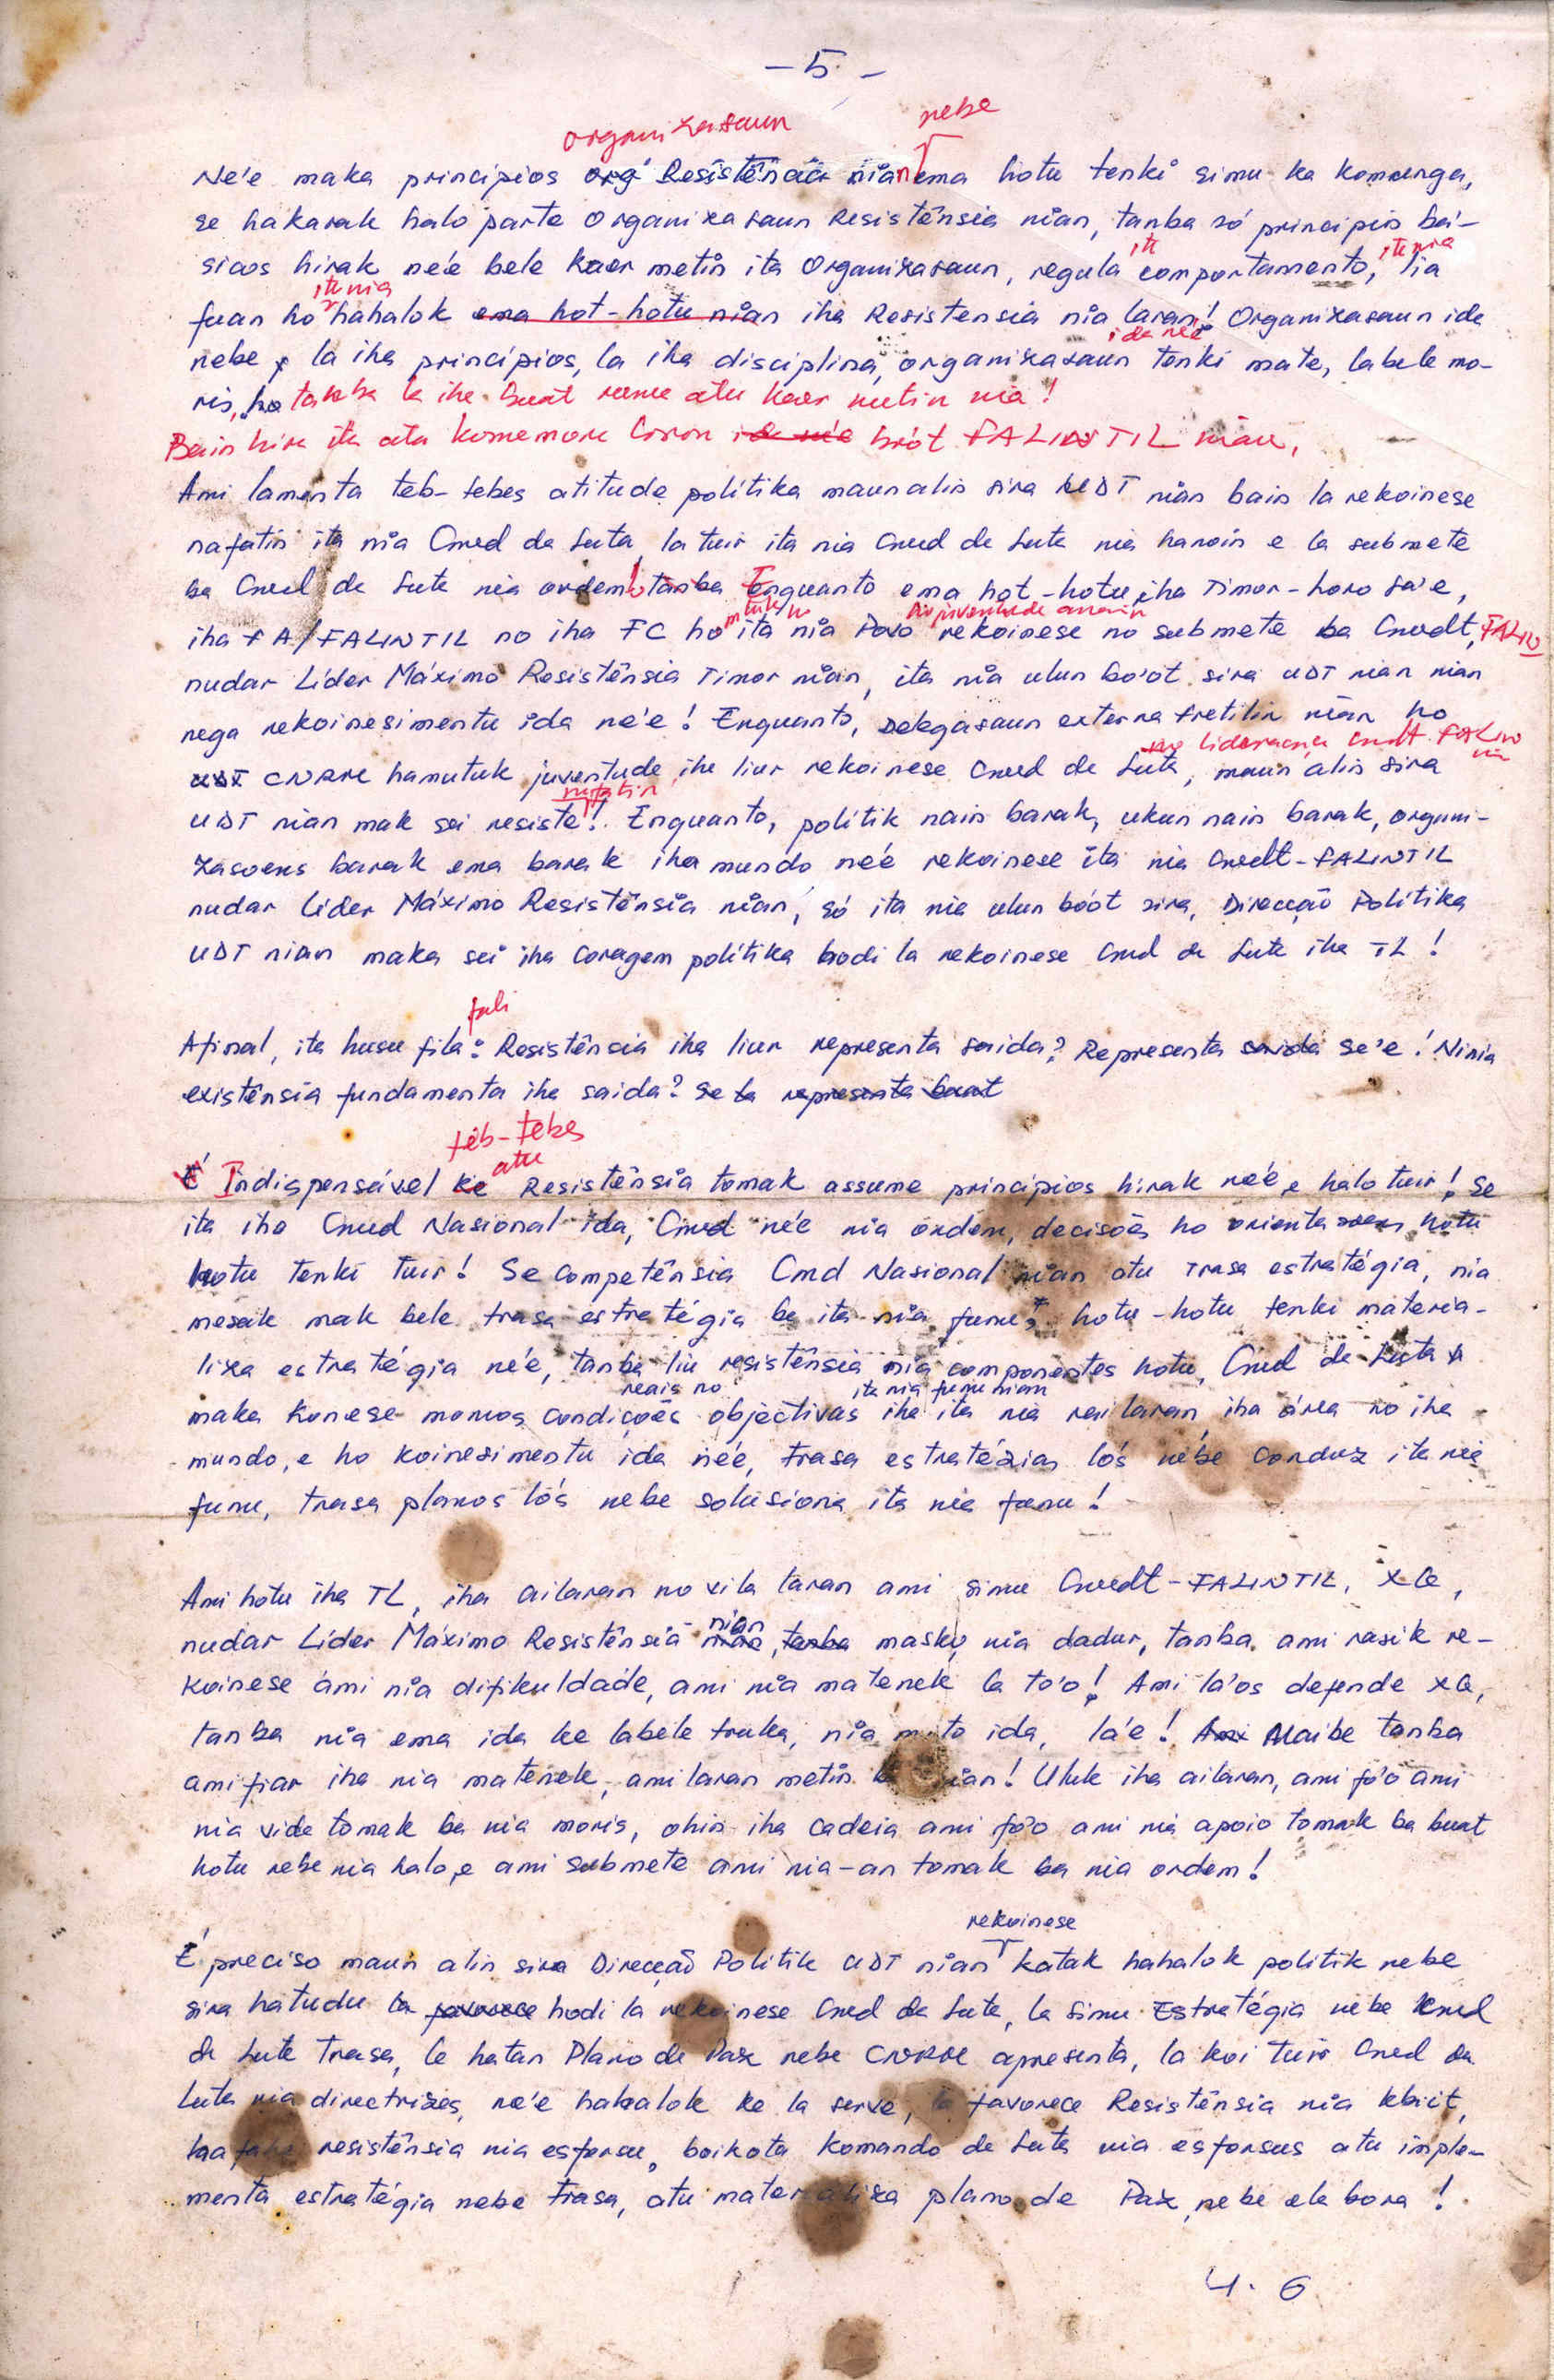 - 5 -
organizasaun nebe
Ne'e maka principios org Resistência nian ema hotu tenki simu ka komunga,
se hakarak halo parte Organizasaun Resistênsia nian, tanba só principios bá-
ite ite nia
sicos hirak ne'e bele kaer metin ita Organizasaun, regula comportamento, lia
ite nia
fuan ho hahalok ema hot-hotu nian iha Resistensia nia laran! Organizasaun ida
ida ne'e
nebe, la iha principios, la iha disciplina, organizasaun tenki mate, labele mo-
ris, ho tanba la iha buat ruma atu kaer metin nia!
Bain hira ita atu komemora loron ida ne'e brót FALINTIL nian,
Ami lamenta teb-tebes atitude polítika maun alin sira UDT nian bain la rekoinese
nafatin ita nia Cmd da Luta, la tuir ita nia Cmd da Luta nia hanoin e la submete
ba Cmd da Luta nia ordem! tanba Enquanto ema hot-hotu iha Timor-horo sa'e,
mutuk no no juventude
iha FA/FALINTIL no iha FC ho ita nia Povo rekoinese no submete ba Cmdt, FALIN
nudar Líder Máximo Resistênsia Timor nian, ita nia ulun bo'ot sira UDT nian nian
nega rekoinesimentu ida ne'e! Enquanto, Delegasaun externa Fretilin nian ho
no liderança Cmdt FALIN
UDT CNRM hamutuk juventude iha liur rekoinese Cmd de Luta, maun alin sira
nafatin
UDT nian mak sei resiste! Enquanto, polítik nain barak, ukun nain barak, organi-
zasoens barak ema barak iha mundo ne'e rekoinese ita nia Cmdt-FALINTIL
nudar Líder Máximo Resistênsia nian, só ita nia ulun bóot sira, Direcção Polítika
UDT nian maka sei iha coragem polítika hodi la rekoinese Cmd da Luta iha TL!
fali
Afinal, ita husu fila: Resistência iha liur representa saida? Representa saida se'e! Ninia
existênsia fundamenta iha saida? Se la representa buat
teb-tebes
atu
É Indispensável ke Resistênsia tomak assume principios hirak ne'e, e halo tuir! Se
ita iha Cmd Nasional ida, Cmd ne'e nia ordem, decisões no orientasoens hotu
hotu tenki tuir! Se competênsia Cmd Nasional nian atu trasa estratégia, nia
mesak mak bele trasa estratégia ba ita nia funu, hotu-hotu tenki materia-
liza estratégia ne'e, tanba liu resistênsia nia componentes hotu, Cmd de Luta
reais no ita nia funu nian
maka konese momos condições objectivas iha ita nia rai laran, iha área no iha
mundo, e ho koinesimentu ida ne'e, trasa estratégias lo's ne'be conduz ita nia
funu, trasa planos lo's nebe solusiona ita nia funu!
Ami hotu iha TL, iha ailaran no vila laran ami simu Cmdt-FALINTIL, XG,
nian
nudar Líder Máximo Resistênsia nian, tanba maske, nia dadur, tanba ami rasik re-
koinese ami nia difikuldade, ami nia matenek la to'o! Ami la'os defende XG,
tanba nia ema ida ke labele truka, nia mito ida, la'e! Ami Maibe tanba
ami fiar iha nia matenek, ami laran metin! Uluk iha ailaran, ami fo'o ami
nia vida tomak ba nia moris, ohin iha cadeia ami fo'o ami nia apoio tomak ba buat
hotu nebe nia halo, e ami submete ami nia-an tomak ba nia ordem!
rekoinese
É preciso maun alin sira Direcção Politik UDT nian katak hahalok politik nebe
sira hatudu la favorece hodi la rekoinese Cmd da Luta, la simu Estratégia nebe Kmd
da Luta Trasa, la hatan Plano de Paz nebe CNRM apresenta, la koi tuir Cmd da
Luta nia directrizes, ne'e hahalok ke la serve, la favorece Resistênsia nia kbiit,
resistênsia nia esforsu, boikota Komando da Luta nia esforsus atu imple-
menta estratégia nebe trasa, atu materializa plano de Paz, nebe elabora!
4. 6